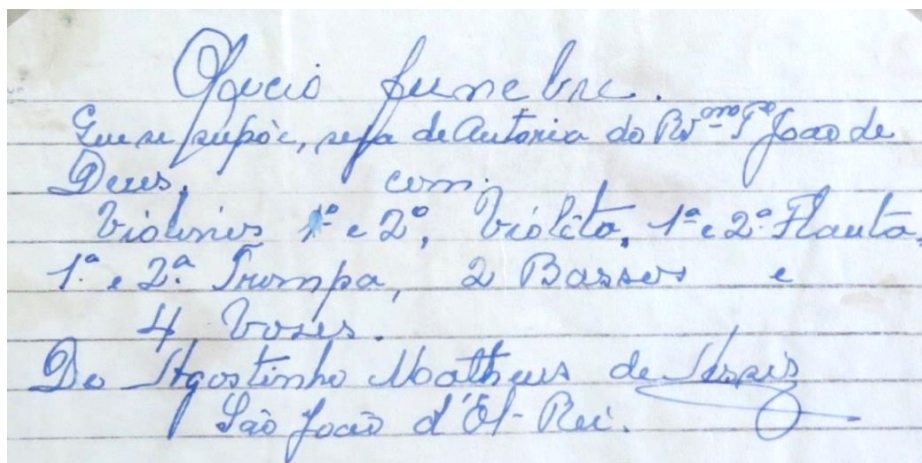 Oficio funebre.
Que se supõe, seja de Autoria do Rvᵐᵒ Pᵉ João de
Deus, com:
Violinos 1º e 2º, Violeta, 1ª e 2ª Flauta,
1ª e 2ª Trompa, 2 Bassos e
4 Vozes.
De Agostinho Matheus de Assis
São João d'El-Rei.